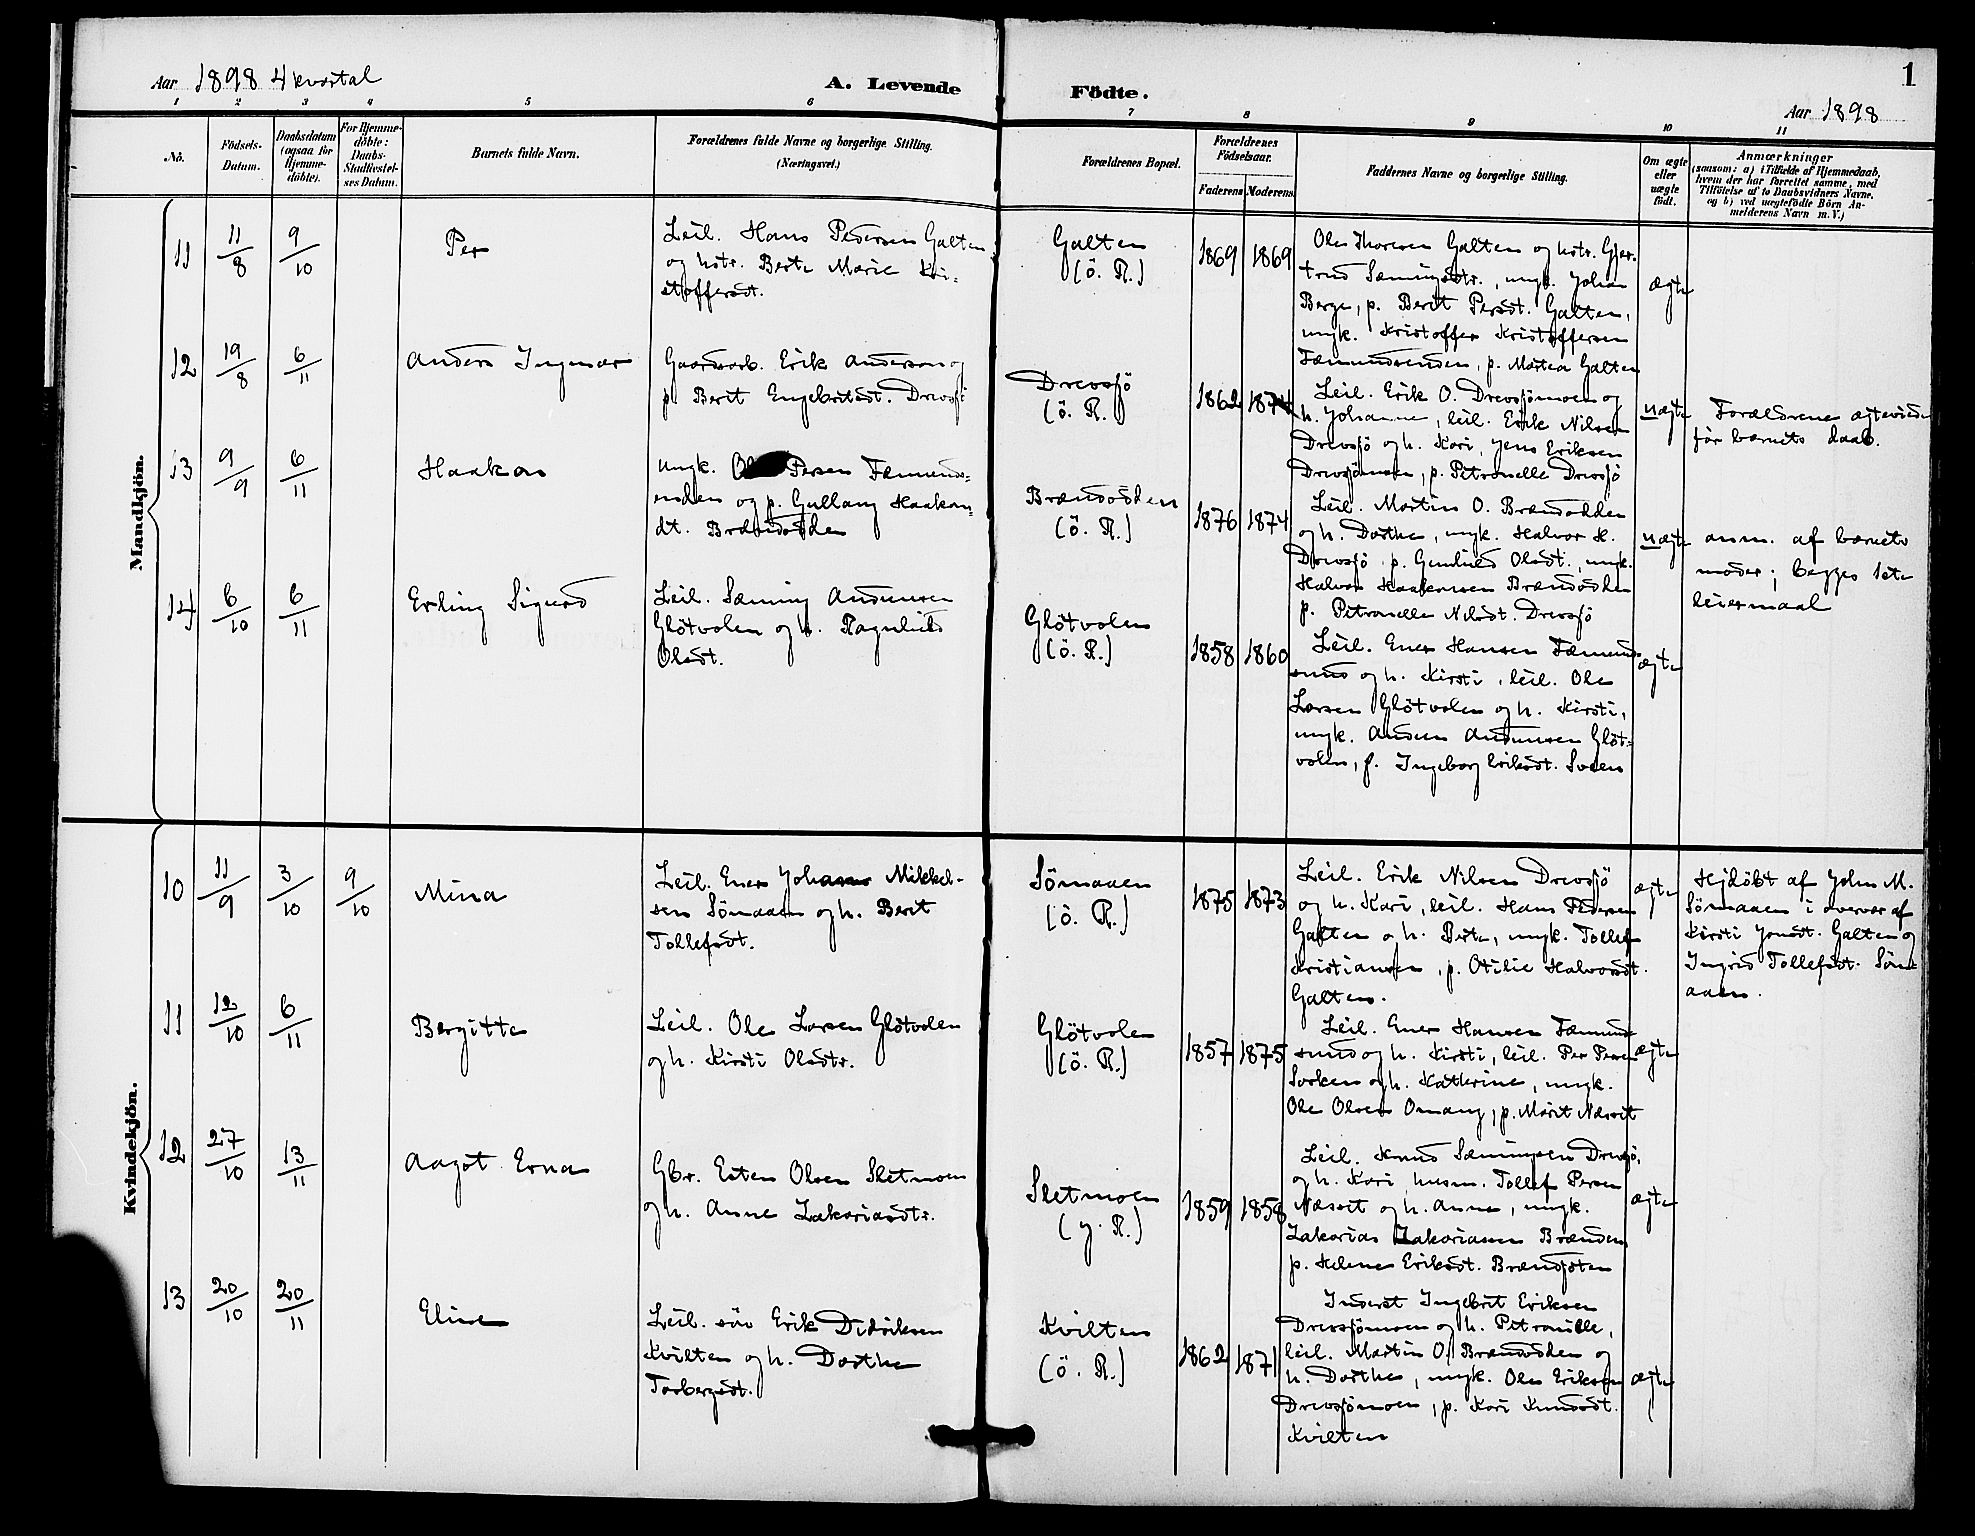 Aar 1898 4 kvartal
A. Levende
Födte.
1
Aar 1898
1 2 3 4 5 6 7 8 9 10 11
No.
Födsels-
Datum.
Daabsdatum
(ogsaa for
Hjemme-
döbte).
For Hjemme-
döbte:
Daabs-
Stadfæstel-
ses Datum.
Barnets fulde Navn.
Forældrenes fulde Navne og borgerlige Stilling.
(Næringsvei.)
Forældrenes Bopæl.
Forældrenes
Födselsaar.
Faderens
Moderens
Faddernes Navne og borgerlige Stilling.
Om ægte
eller
uægte
födt.
Anmærkninger
(saasom: a) i Tilfælde af Hjemmedaab,
hvem der har forrettet samme, med
Tilföielse af to Daabsvidners Navne,
og b) ved uægtefödte Börn An-
melderens Navn m. V.)
Mandkjön.
11
11/8
9/10
Per
Leil. Hans Pedersen Galten
og hstr. Berte Marie Kri-
stoffersdt.
Galten
(ö. R.)
1869
1869
Ole Thoresen Galten og hstr. Gjer-
trud Sæmingsdtr., ungk. Johan
Berge, p. Berit Persdt. Galten,
ungk. Kristoffer Kristoffersen
Fæmundsenden, p. Martea Galten
ægte
12
19/8
6/11
Anders Ingmar
Gaardsarb. Erik Anderson og
p. Berit Engebritsdt. Drevsjö
Drevsjö
(ö. R.)
1862
1874
Leil. Erik O. Drevsjömoen og
h. Johanne, leil. Erik Nilsen
Drevsjö og h. Kari, Jens Eriksen
Drevsjömoen, p. Petronelle Drevsjö
uægte
Forældrene ægteviede
för barnets daab.
13
9/9
6/11
Haakon
Ungk. Ole Persen Fæmunds-
enden og p. Gullaug Haakon-
dt. Brændödden
Brændödden
(ö. R.)
1876
1874
Leil. Martin O. Brændödden
og h. Dorthe, ungk. Halvor H.
Drevsjö p. Gunhild Olsdt., ungk.
Halvor Haakensen Brændödden
p. Petronelle Nilsdt. Drevsjö
uægte
anm. af barnets
moder; begges 1ste
leiermaal
14
6/10
6/11
Erling Sigurd
Leil. Sæming Andersen
Glötvolen og h. Ragnhild
Olsdt.
Glötvolen
(ö. R.)
1858
1860
Leil. Ener Hansen Fæmund-
sund og h. Kirsti, leil. Ole
Larsen Glötvolen og h. Kirsti,
ungk. Anders Andersen Glöt-
volen, p. Ingeborg Eriksdt. Sveen
ægte
Kvindekjön.
10
11/9
3/10
9/10
Mina
Leil. Ener Johans Mikkel-
sen Sömaaen og h. Berit
Tollefsdt.
Sömaaen
(ö. R.)
1875
1873
Leil. Erik Nilsen Drevsjö
og h. Kari, leil. Hans Pedersen
Galten og h. Berte, ungk. Tollef
Kristiansen, p. Otilie Halvorsdt.
Galten.
ægte
Hjdöbt af John M.
Sömaaen i overvær af
Kirsti Jonsdt. Galten og
Ingrid Tollefsdt. Söm-
aaen.
11
12/10
6/11
Bergitte
Leil. Ole Larsen Glötvolen
og h. Kirsti Olsdtr.
Glötvolen
(ö. R.)
1857
1875
Leil. Ener Hansen Fæmund-
sund og h. Kirsti, leil. Per Persen
Sorken og h. Kathrine, ungk.
Ole Olsen Omang, p. Marit Næsset
ægte
12
27/10
13/11
Aagot Erna
Gbr. Esten Olsen Sletmoen
og h. Anne Zakariasdtr.
Sletmoen
(y. R.)
1859
1858
Leil. Knud Sæmingsen Drevsjö,
og h. Kari, husm. Tollef Persen
Næsset og h. Anne, ungk.
Zakarias Zakariasen Brænden
p. Helene Eriksdt. Brændjöten
ægte
13
20/10
20/11
Eline
Leil. sön Erik Didriksen
Kvilten og h. Dorthe
Torbergsdt.
Kvilten
(ö. R.)
1862
1871
Inderst Ingebrit Eriksen
Drevsjömoen og h. Petronille,
leil. Martin O. Brændödden og
h. Dorthe, ungk. Ole Eriksen
Drevsjömoen, p. Kari Knudsdt.
Kvilten
ægte